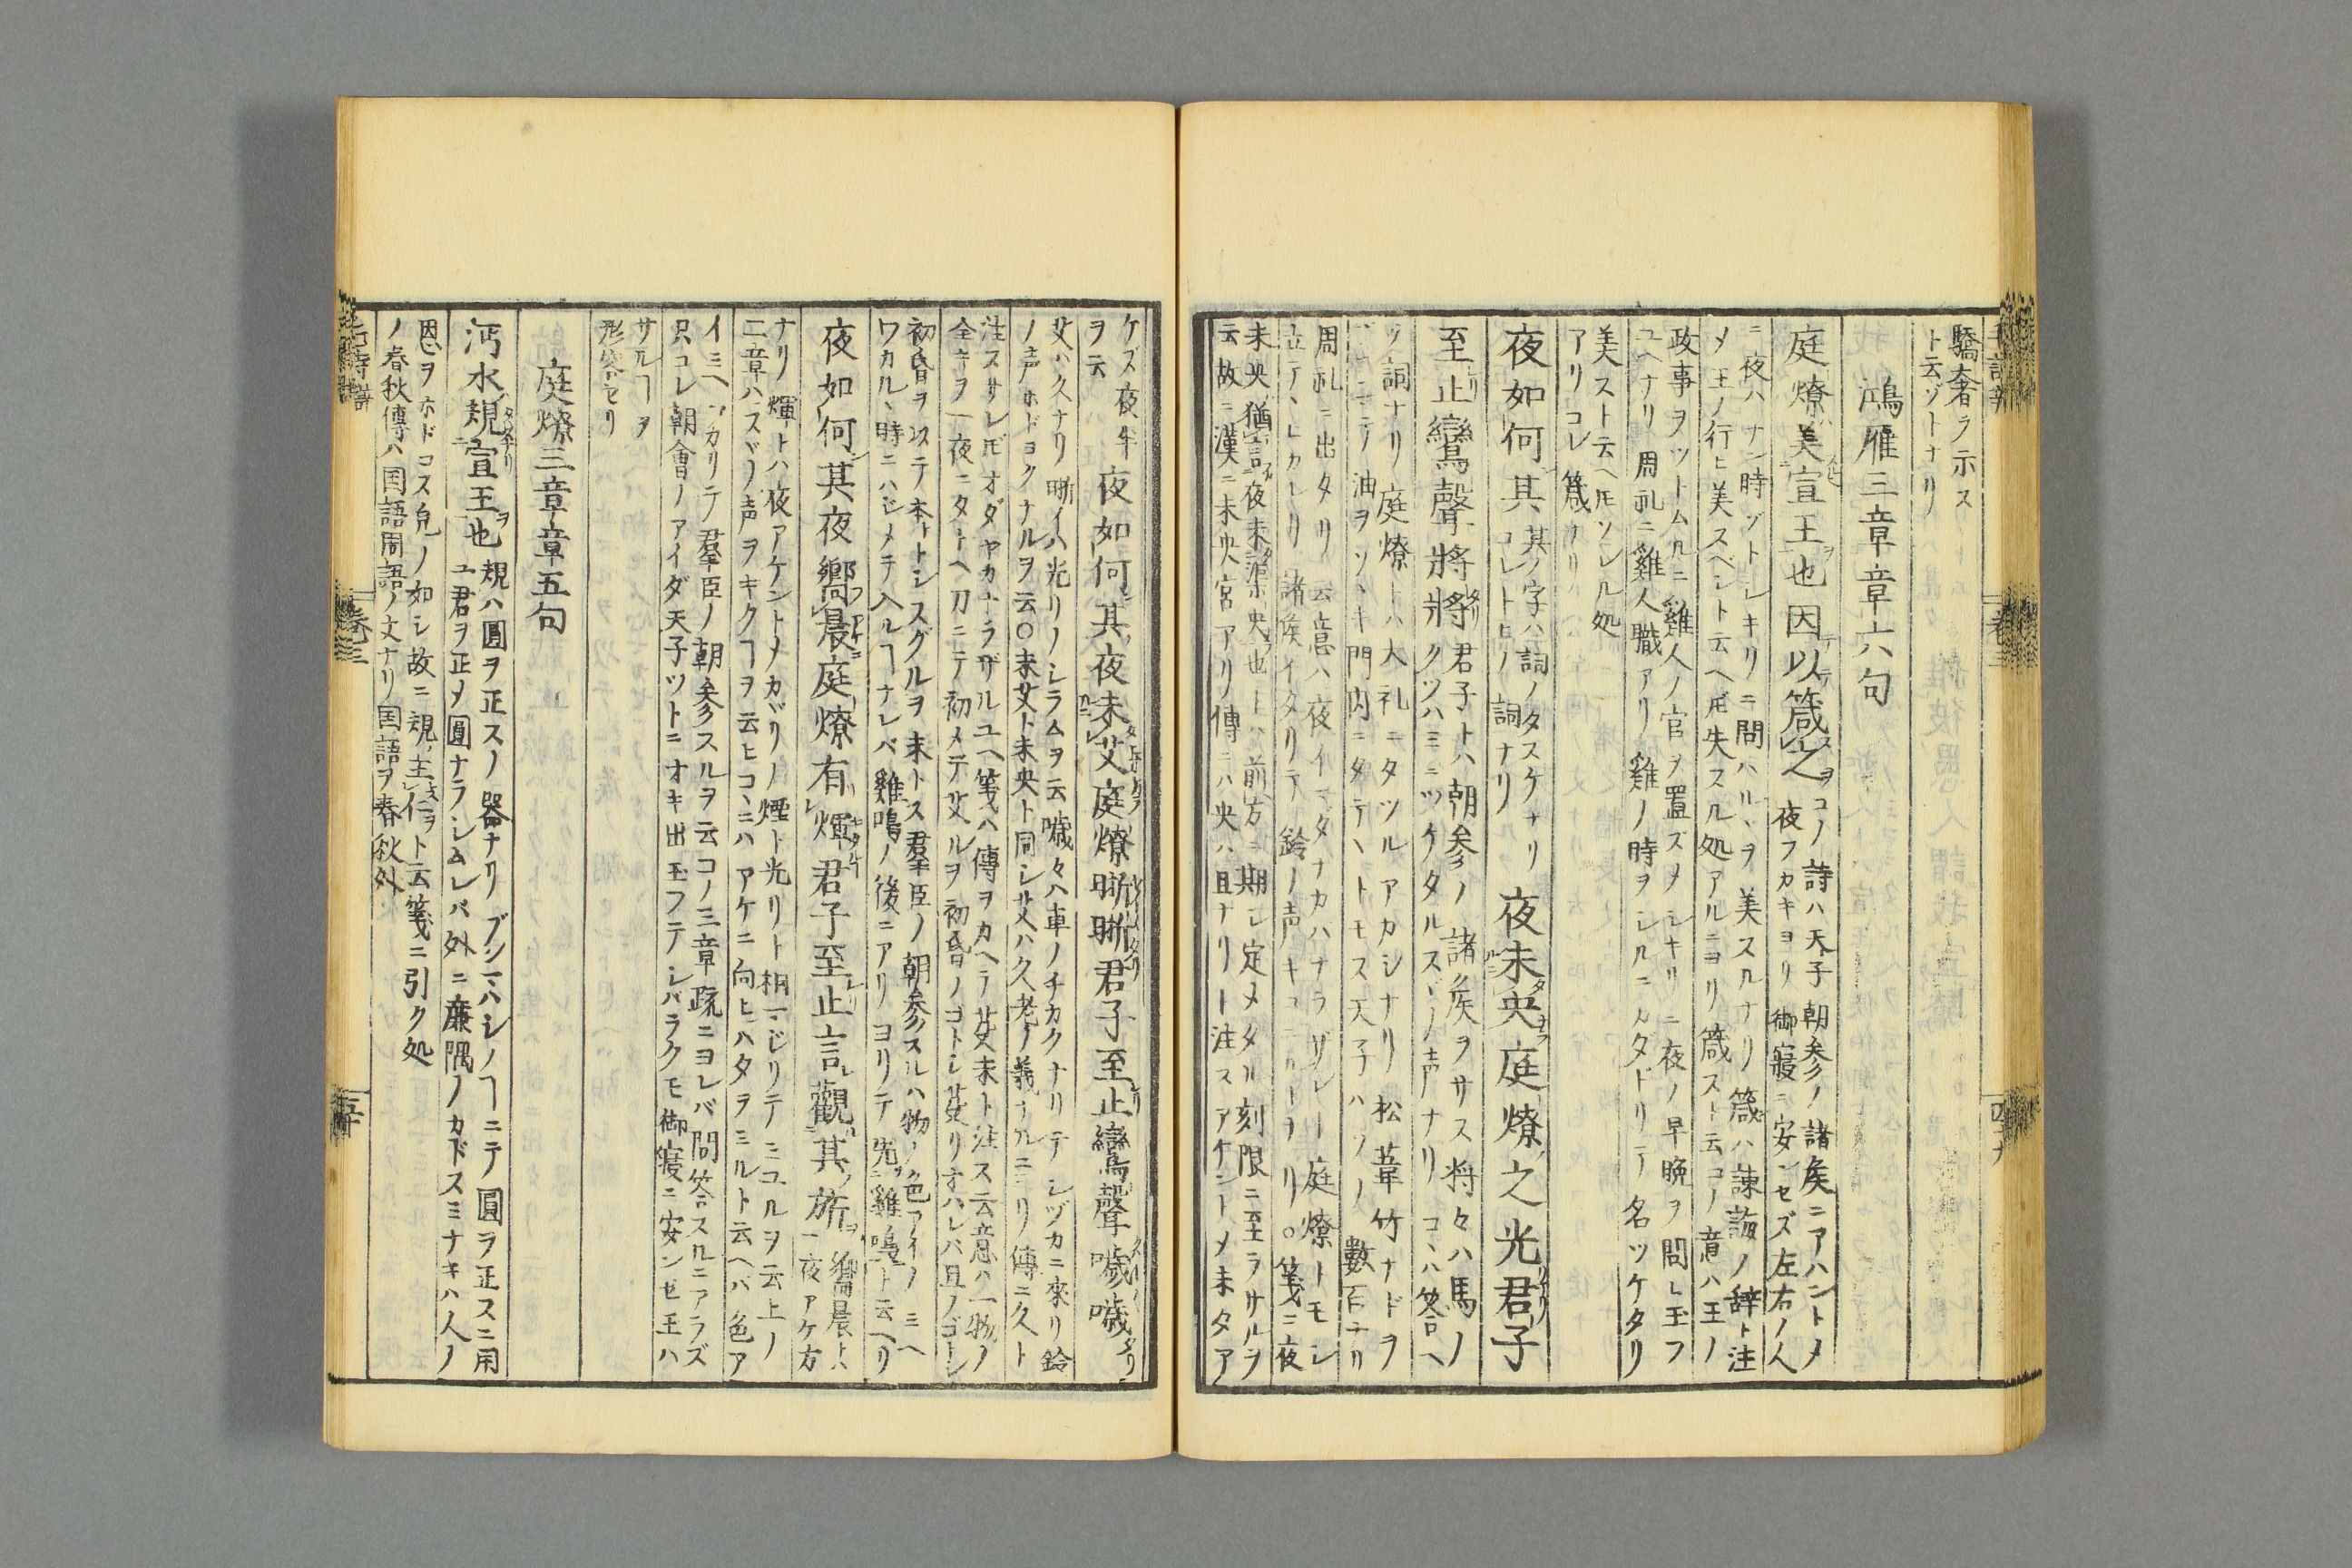 驕奢ヲ示ス
ト云ゾトナリ
鴻雁三章章六句
庭燎美宣王也因以箴之
コノ詩ハ天子朝参ノ諸矦ニアハントメ
夜フカキヨリ御寢ニ安ンセズ左右ノ人
ニ夜ハナン時ゾトシキリニ問ハル、ヲ美スルナリ箴ハ諫誨ノ辞ト注
メ王ノ行ヒ美スベシト云ヘ𪜈失スル処アルニヨリ箴スト云コノ意ハ王ノ
政事ヲツトムルニ雞人ノ官ヲ置ズメシキリニ夜ノ早晩ヲ問レ玉フ
ユヘナリ周礼ニ雞人職アリ雞ノ時ヲシルニカタドリテ名ツケタリ
美スト云ヘ𪜈ソレル処
アリコレ箴ナリ
夜如何其
其ノ字ハ詞ノタスケナリ
コレトヒノ詞ナリ
夜未央庭燎之光君子
至止鸞聲將將
君子トハ朝参ノ諸矦ヲサス将々ハ馬ノ
クツハミニツケタルスヾノ声ナリコヽハ答ヘ
ノ詞ナリ庭燎トハ大礼ニタツルアカシナリ松葦竹ナドヲ
油ヲツヽキ門内ニタテヽトモス天子ハソノ數百ナリ
周礼ニ出タリ云意ハ夜イマタナカハナラザレ𪜈庭燎トモシ
立テラレタリ諸矦イタリテ鈴ノ声キコユルトナリ○箋ニ夜
未央猶言夜未渠央也トハ前方ニ期シ定メタル刻限ニ至ラサルヲ
云故ニ漢ニ未央宮アリ傳ニハ央ハ且ナリト注スアケントメ未タア
ケズ夜半
ヲ云
夜如何其夜未艾庭燎晣晣君子至止鸞聲噦噦
艾ハ久ナリ晣々ハ光リノシラムヲ云噦々ハ車ノチカクナリテシヅカニ來リ鈴
ノ声ホドヨクナルヲ云○未艾ト未央ト同シ艾ハ久老ノ義ナルニヨリ傳ニ久ト
注スサレ𪜈オダヤカナラザルユヘ箋ハ傳ヲカヘテ芟未ト注ス云意ハ一物ノ
全キヲ一夜ニタトヘ刀ニテ初メテ艾ルヲ初昏ノゴトシ芟リオハレバ旦ノゴトシ
初昏ヲ以テ本トシスグルヲ末トス羣臣ノ朝参スルハ物ノ色アイノミヘ
ワカルヽ時ニハジメテ入ルヿナレバ雞鳴ノ後ニアリヨリテ先ニ雞鳴ト云ヘリ
夜如何其夜鄉晨庭燎有煇君子至止言觀其旂
鄉晨トハ
一夜アケ方
ナリ煇トハ夜アケントメカヾリノ煙ト光リト相マジリテミユルヲ云上ノ
二章ハスヾノ声ヲキクヿヲ云ヒコヽニハアケニ向ヒハタヲミルト云ヘバ色ア
イミヘワカリテ羣臣ノ朝参スルヲ云コノ三章疏ニヨレバ問答スルニアラズ
只コレ朝會ノアイダ天子ツトニオキ出玉フテシバラクモ御寢ニ安ンゼ玉ハ
サルヿヲ
形容セリ
庭燎三章章五句
沔水規宣王也
規ハ圓ヲ正スノ器ナリブンマハシノヿニテ圓ヲ正スニ用
ユ君ヲ正メ圓ナラシムレバ外ニ廉隅ノカドスミナキハ人ノ
恩ヲホドコス皃ノ如シ故ニ規ハ主仁ヲト云箋ニ引ク処
ノ春秋傳ハ国語周語ノ文ナリ国語ヲ春秋外